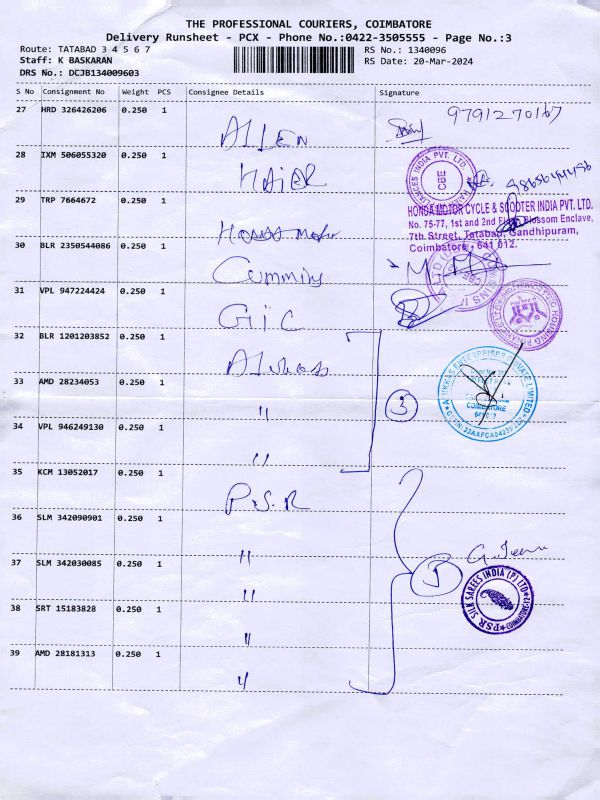 THE PROFESSIONAL COURIERS, COIMBATORE
Delivery Runsheet - PCX - Phone No.:0422-3505555 - Page No.:3
Route: TATABAD 3 4 5 6 7 RS No.: 1340096
Staff: K BASKARAN RS Date: 20-Mar-2024
DRS No.: DCJB134009603
S No Consignment No Weight PCS Consignee Details Signature
27 HRD 326426206 0.250 1 9791270167
ALLEN
28 IXM 506055320 0.250 1
HAIER
29 TRP 7664672 0.250 1
HONDA MOTOR CYCLE & SCOOTER INDIA PVT. LTD.
No. 75-77, 1st and 2nd Floor, Blossom Enclave,
7th Street, Tatabad, Gandhipuram,
Coimbatore - 641 012.
Honda Motor
30 BLR 2350544086 0.250 1
Cummins
31 VPL 947224424 0.250 1
GIC
32 BLR 1201203852 0.250 1
Alukkas
33 AMD 28234053 0.250 1
" 3
34 VPL 946249130 0.250 1
"
35 KCM 13052017 0.250 1
P.S.R
36 SLM 342090901 0.250 1
"
37 SLM 342030085 0.250 1
" 5
PSR SILK SAREES INDIA (P) LTD
COIMBATORE-12
38 SRT 15183828 0.250 1
"
39 AMD 28181313 0.250 1
"